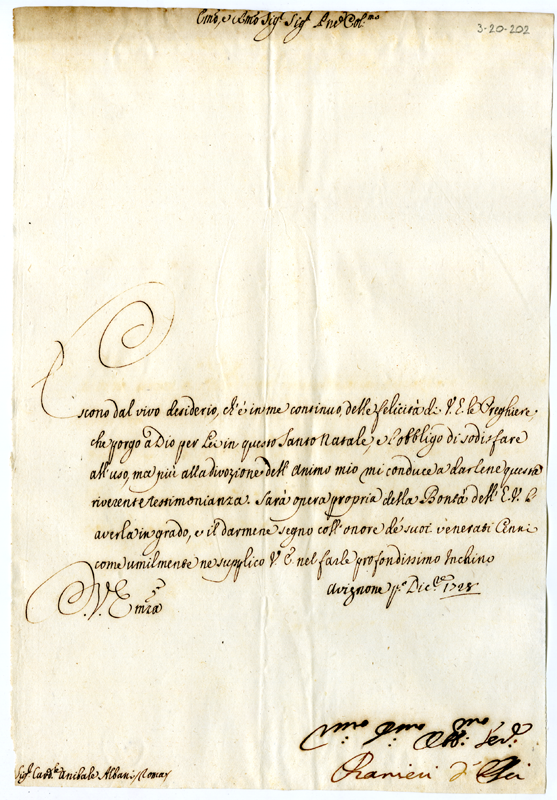 Emo, e Rmo Sigr Sigr Pne Colmo
3-20-202
Escono dal vivo desiderio, ch'è in me continuo, delle felicità di V. E. le Preghiere,
che porgo a Dio per Lei in questo Santo Natale, e l'obbligo di sodisfare
all'uso, ma più alla divozione dell'animo mio mi conduce a darlene questa
riverente testimonianza. Sarà opera propria della Bontà dell'E. V. l'
averla in grado, e il darmene segno coll'onore de' suoi venerati Cenni
come umilmente ne supplico V. E. nel farle profondissimo Inchino
Avignone po Dicre 1728
V. Emza
Sigr Cardle Anibale Albani Roma
Ummo Dmmo Obbmo Serv.
Ranieri d'Elci